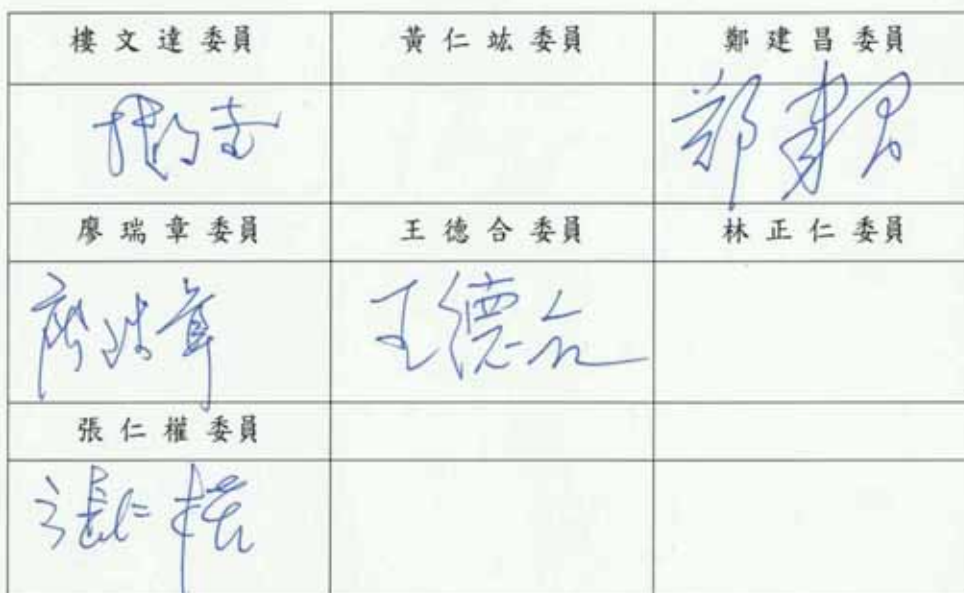 樓文達委員 黃仁竑委員 鄭建昌委員
鄭建昌
廖瑞章委員 王德合委員 林正仁委員
廖瑞章 王德合
張仁權委員
張仁權